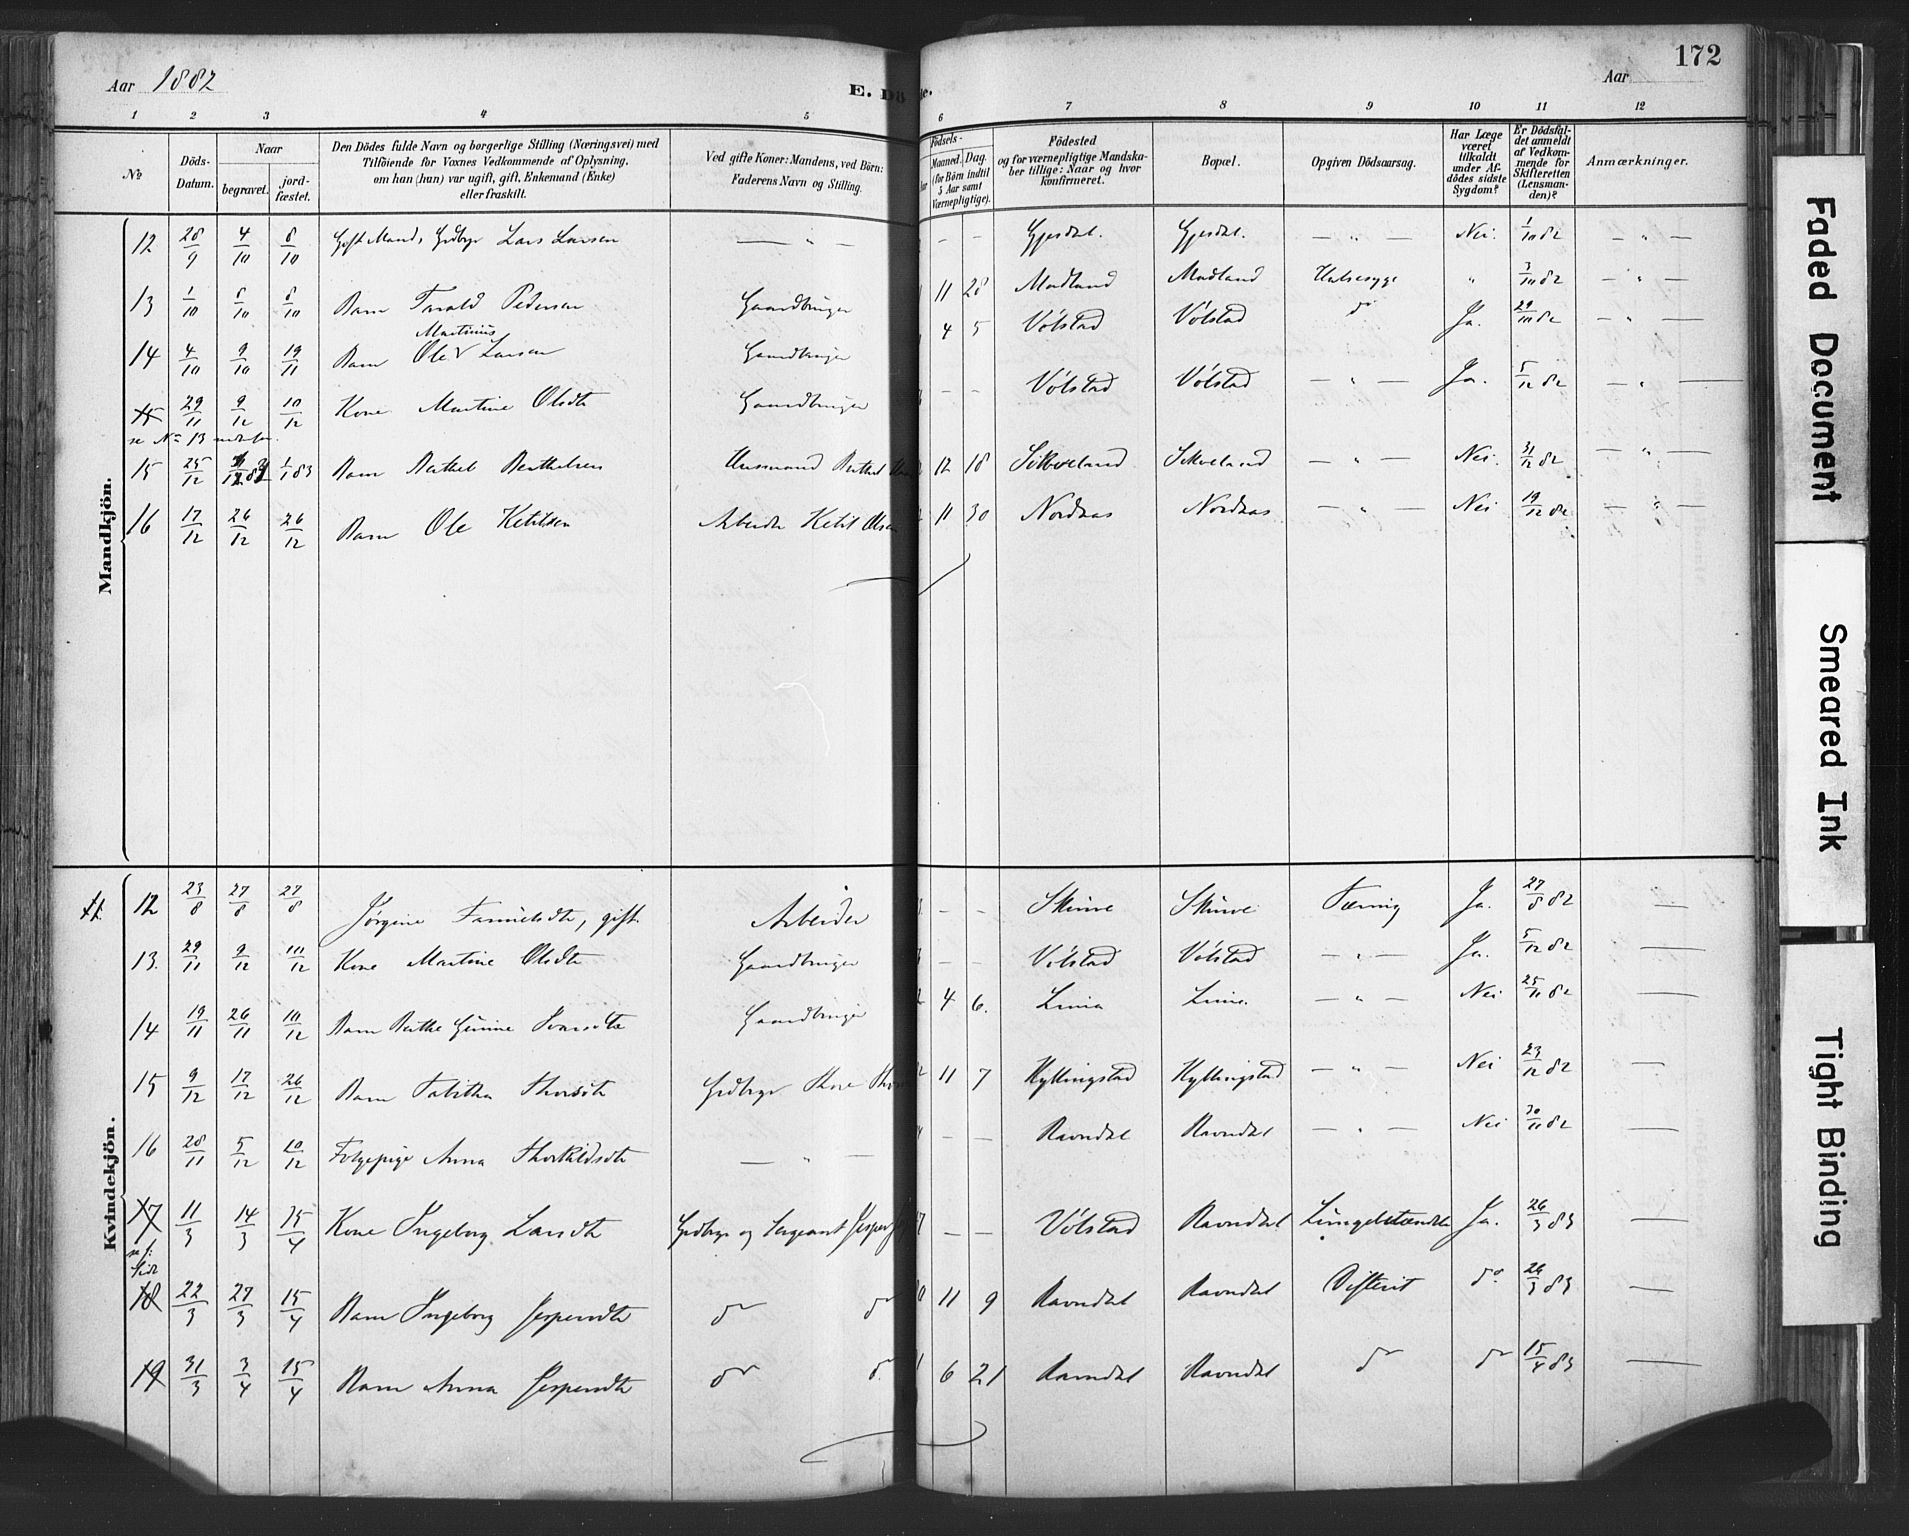 172
Aar 1882
E. Dö
e.
Aar
1 2 3 4 5 6 7 8 9 10 11 12
No
Döds-Datum.
Naar
begravet.
jord-fæstet.
Den Dödes fulde Navn og borgerlige Stilling (Næringsvei) med
Tilföiende for Voxnes Vedkommende af Oplysning,
om han (hun) var ugift, gift, Enkemand (Enke)
eller fraskilt.
Ved gifte Koner: Mandens, ved Börn:
Faderens Navn og Stilling.
Födsels-
Maaned. Dag.
(for Börn indtil
5 Aar samt
Værnepligtige).
Födested
og for værnepligtige Mandska-
ber tillige: Naar og hvor
konfirmeret.
Bopæl.
Opgiven Dödsaarsag.
Har Læge
været
tilkaldt
under Af-
dödes sidste
Sygdom?
Er Dödsfal-
det anmeldt
af Vedkom-
mende for
Skifteretten
(Lensman-
den)?
Anmærkninger.
Mandkjön.
12 28/9 4/10 8/10 Gift Mand, Grdbrgr Lars Larsen — " — — — Gjesdal. Gjesdal. — " — Nei. 1/10 82 — " —
13 1/10 8/10 8/10 Barn Tarald Pedersen Gaardbruger 11 28 Madland Madland Halsesyge " 3/10 82 — " —
Martinus
14 4/10 9/10 19/11 Barn Ole V Larsen Gaardbruger 4 5 Vølstad Vølstad do Ja. 29/10 82 — " —
15 29/11 9/12 10/12 Kone Martine Olsdtr Gaardbruger — — Vølstad Vølstad — " — Ja. 5/12 82 — " —
se No 13 nedenfor.
15 25/12 1/1 83 Barn Berthel Berthelsen Husmand Berthel 12 18 Sikveland Sikveland — " — Nei. 31/12 82 — " —
16 17/12 26/12 26/12 Barn Ole Ketilsen Arbeider Ketil Olsen 11 30 Nordaas Nordaas — " — Nei 19/12 82 — " —
Kvindekjön.
12 23/8 27/8 27/8 Jørgine Samuelsdtr, gift. Arbeider — — Skurve Skurve Tæring Ja. 27/8 82 —
13. 29/11 9/12 10/12 Kone Martine Olsdtr Gaardbruger — — Vølstad Vølstad — " — Ja. 5/12 82 —
14 19/11 26/11 10/12 Barn Berthe Gurine Gaardbruger 4 6. Lima Lima. — " — Nei 25/11 82 —
15 9/12 17/12 26/12 Barn Tabitha Thoresdtr Grdbrgr Thore 11 7 Kyllingstad Kyllingstad — " — Nei 23/12 82 —
16 28/11 5/12 10/12 Anna Thorkildsdtr — " — — — Ravndal Ravndal — " — Nei 30/11 82 —
17 11/3 14/3 15/4 Kone Ingeborg Larsdtr Grdbrgr og Sergeant Jesper — — Vølstad Ravndal Lungebetændelse Ja. 26/3 83 —
18 22/3 27/3 15/4 Barn Ingeborg Jespersdtr do do 11 9 Ravndal Ravndal Difterit do. 26/3 83 —
19 31/3 3/4 15/4 Barn Anna Jespersdtr do do. 6 21 Ravndal Ravndal do do 15/4 83 —
Faded Document
Smeared Ink
Tight Binding